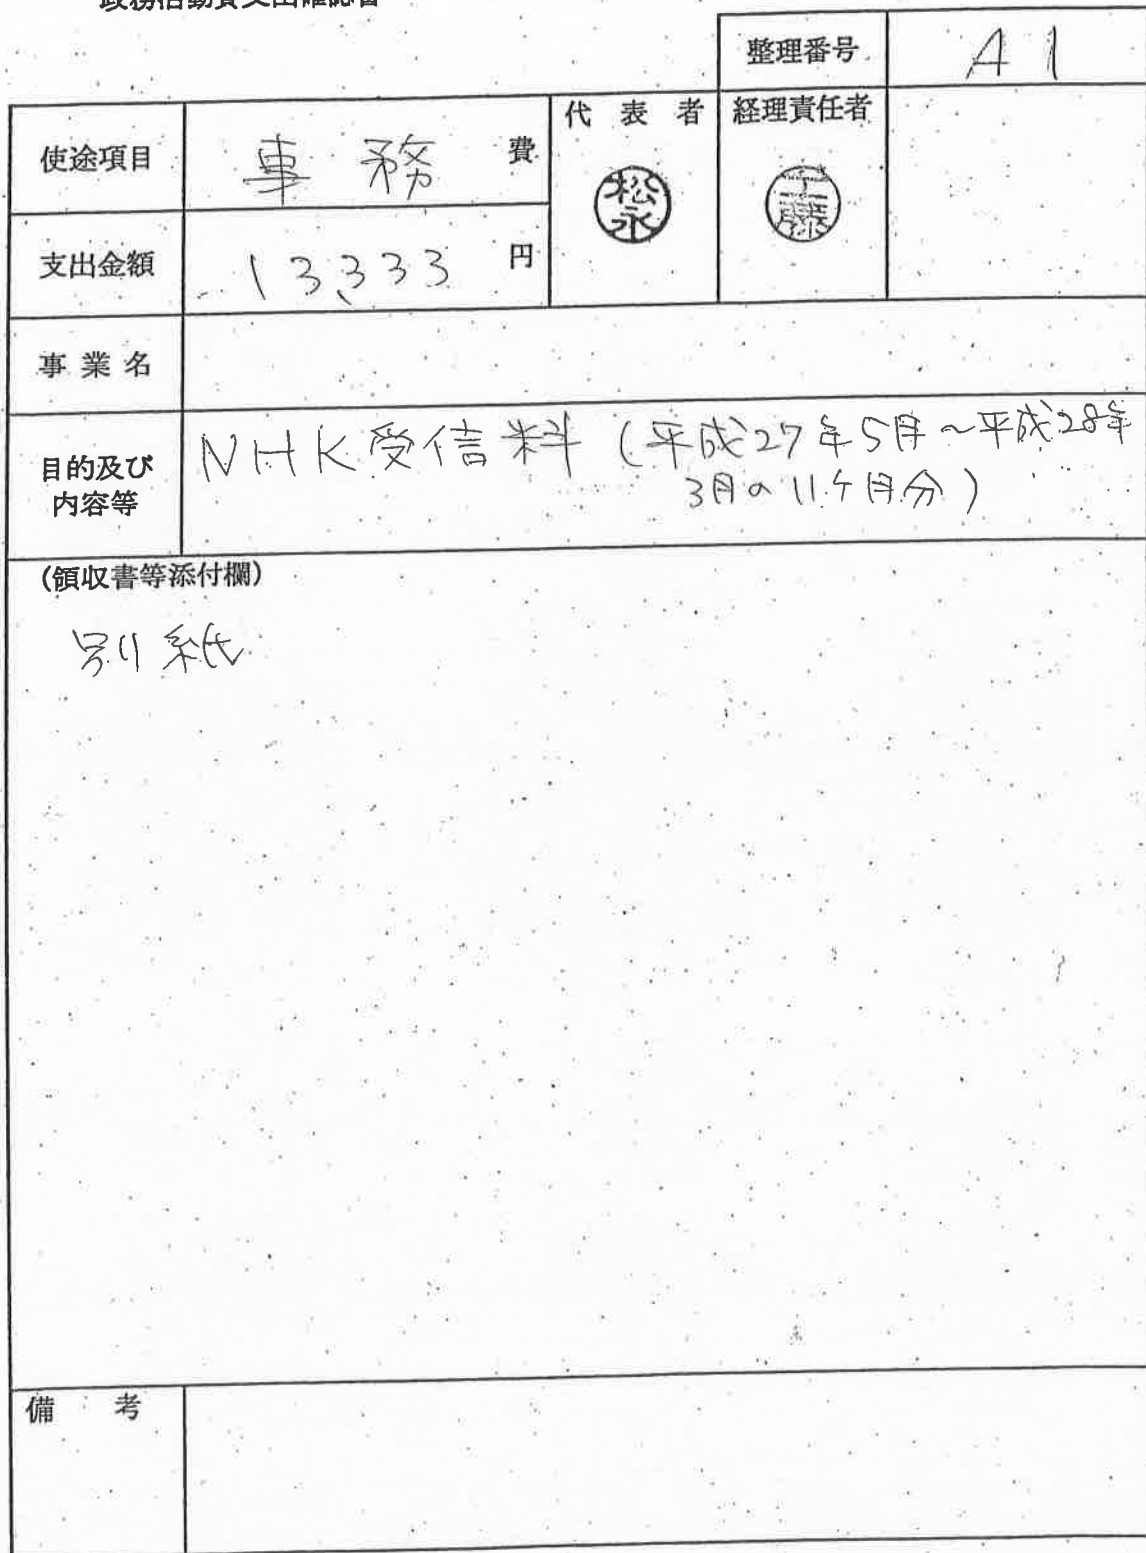 政務活動費支出確認書
整理番号 A1
使途項目 事務費
代表者 経理責任者
松永
工藤
支出金額 13,333 円
事業名
目的及び内容等
NHK受信料 (平成27年5月~平成28年
3月の11ケ月分)
(領収書等添付欄)
別紙
備考